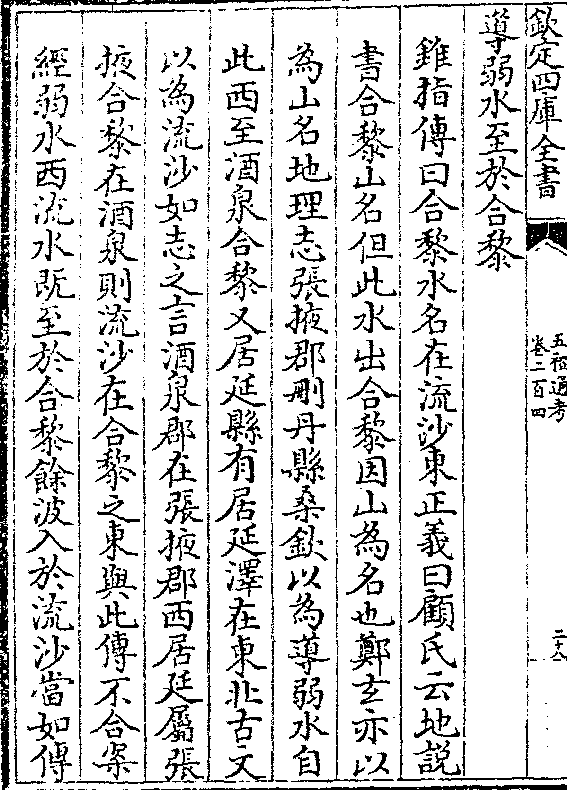 欽定四庫全書
五禮通考
卷二百四
二十八
導弱水至於合黎
錐指傳曰合黎水名在流沙東正義曰顧氏云地說
書合黎山名但此水出合黎因山為名也鄭玄亦以
為山名地理志張掖郡刪丹縣桑欽以為導弱水自
此西至酒泉合黎又居延縣有居延澤在東北古文
以為流沙如志之言酒泉郡在張掖郡西居延屬張
掖合黎在酒泉則流沙在合黎之東與此傳不合案
經弱水西流水既至於合黎餘波入於流沙當如傳